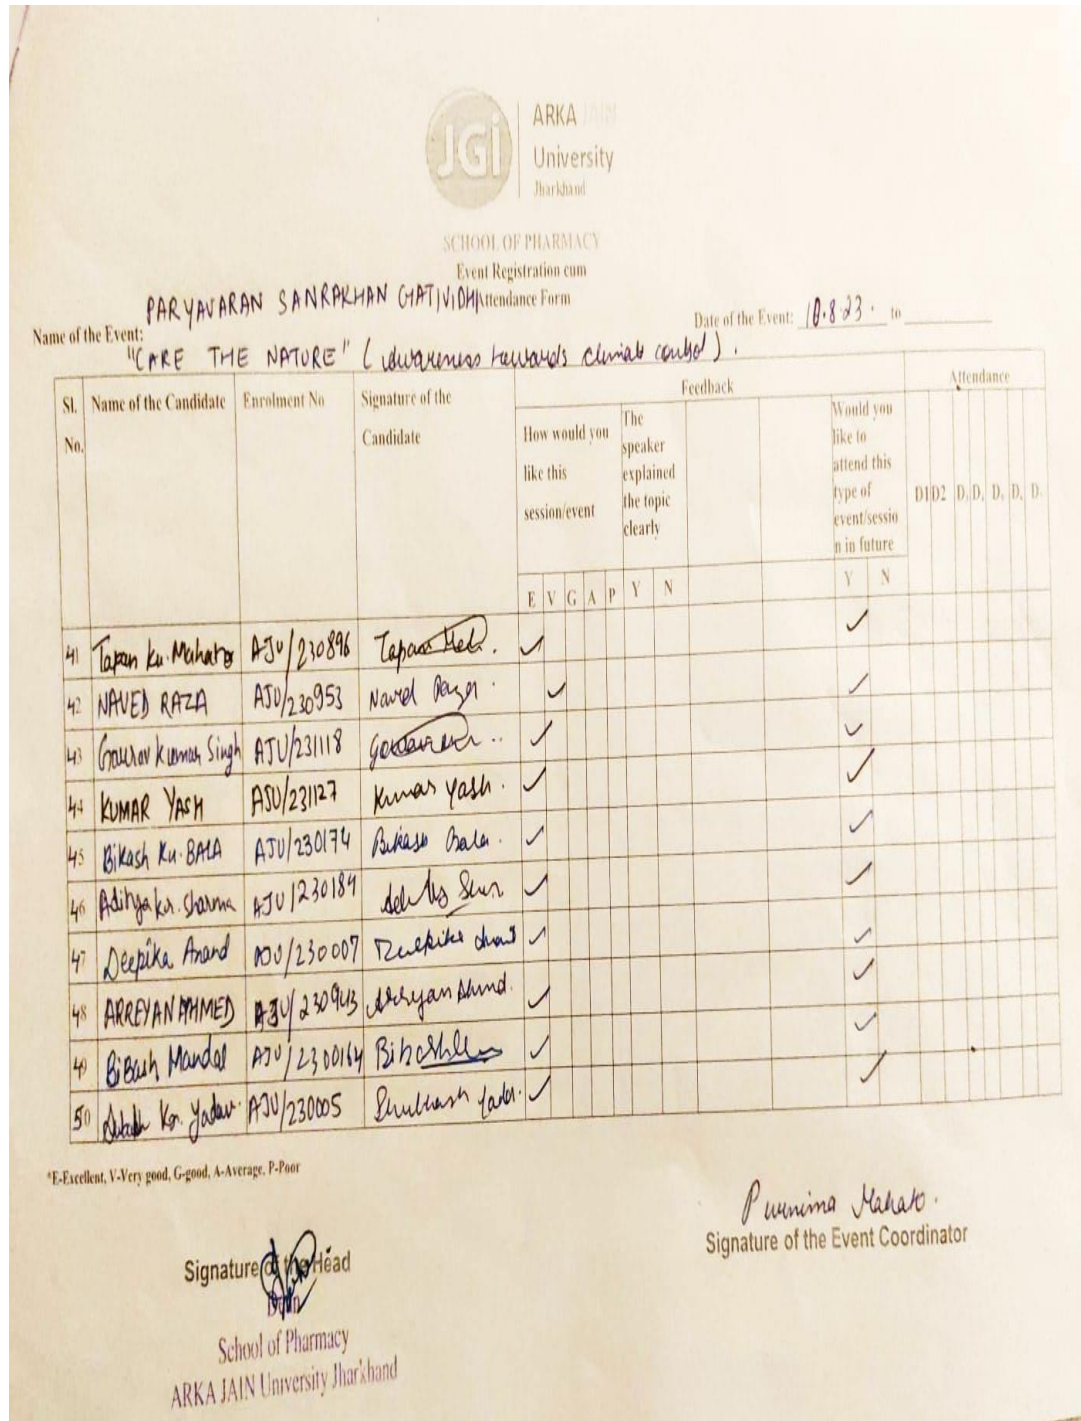 JGi
ARKA JAIN
University
Jharkhand
SCHOOL OF PHARMACY
Event Registration cum
PARYAVARAN SANRAKHAN GATIVIDHI Attendance Form
Name of the Event: Date of the Event: 10.8.23. to
"CARE THE NATURE" (awareness towards climate control).
Sl. No. Name of the Candidate Enrolment No Signature of the Candidate Feedback Attendance
How would you like this session/event
The speaker explained the topic clearly
Would you like to attend this type of event/session in future
D1 D2 D. D. D. D. D.
E V G A P Y N Y N
41 Tapan Ku. Mahato AJU/230896 Tapan ✓ ✓
42 NAVED RAZA AJU/230953 Naved Raza ✓ ✓
43 Gaurav Kumar Singh AJU/231118 ✓ ✓
44 KUMAR YASH AJU/231127 Kumar Yash. ✓ ✓
45 Bikash Ku. BALA AJU/230174 Bikash Bala. ✓ ✓
46 Aditya kr. Sharma AJU/230184 ✓ ✓
47 Deepika Anand AJU/230007 Deepika Anand ✓ ✓
48 ARREYAN AHMED AJU/230943 Arreyan Ahmd. ✓ ✓
49 BiBash Mandal AJU/2300164 ✓ ✓
50 Kr. Yadav. AJU/230005 Yadav. ✓ ✓
*E-Excellent, V-Very good, G-good, A-Average, P-Poor
Purnima Mahato.
Signature of the Event Coordinator
Signature of the Head
Dean
School of Pharmacy
ARKA JAIN University Jharkhand